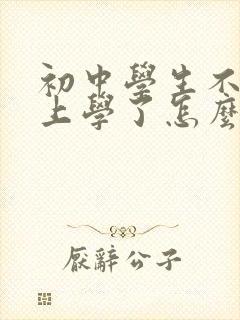 初中學生不
上學了怎麼
厭辭公子